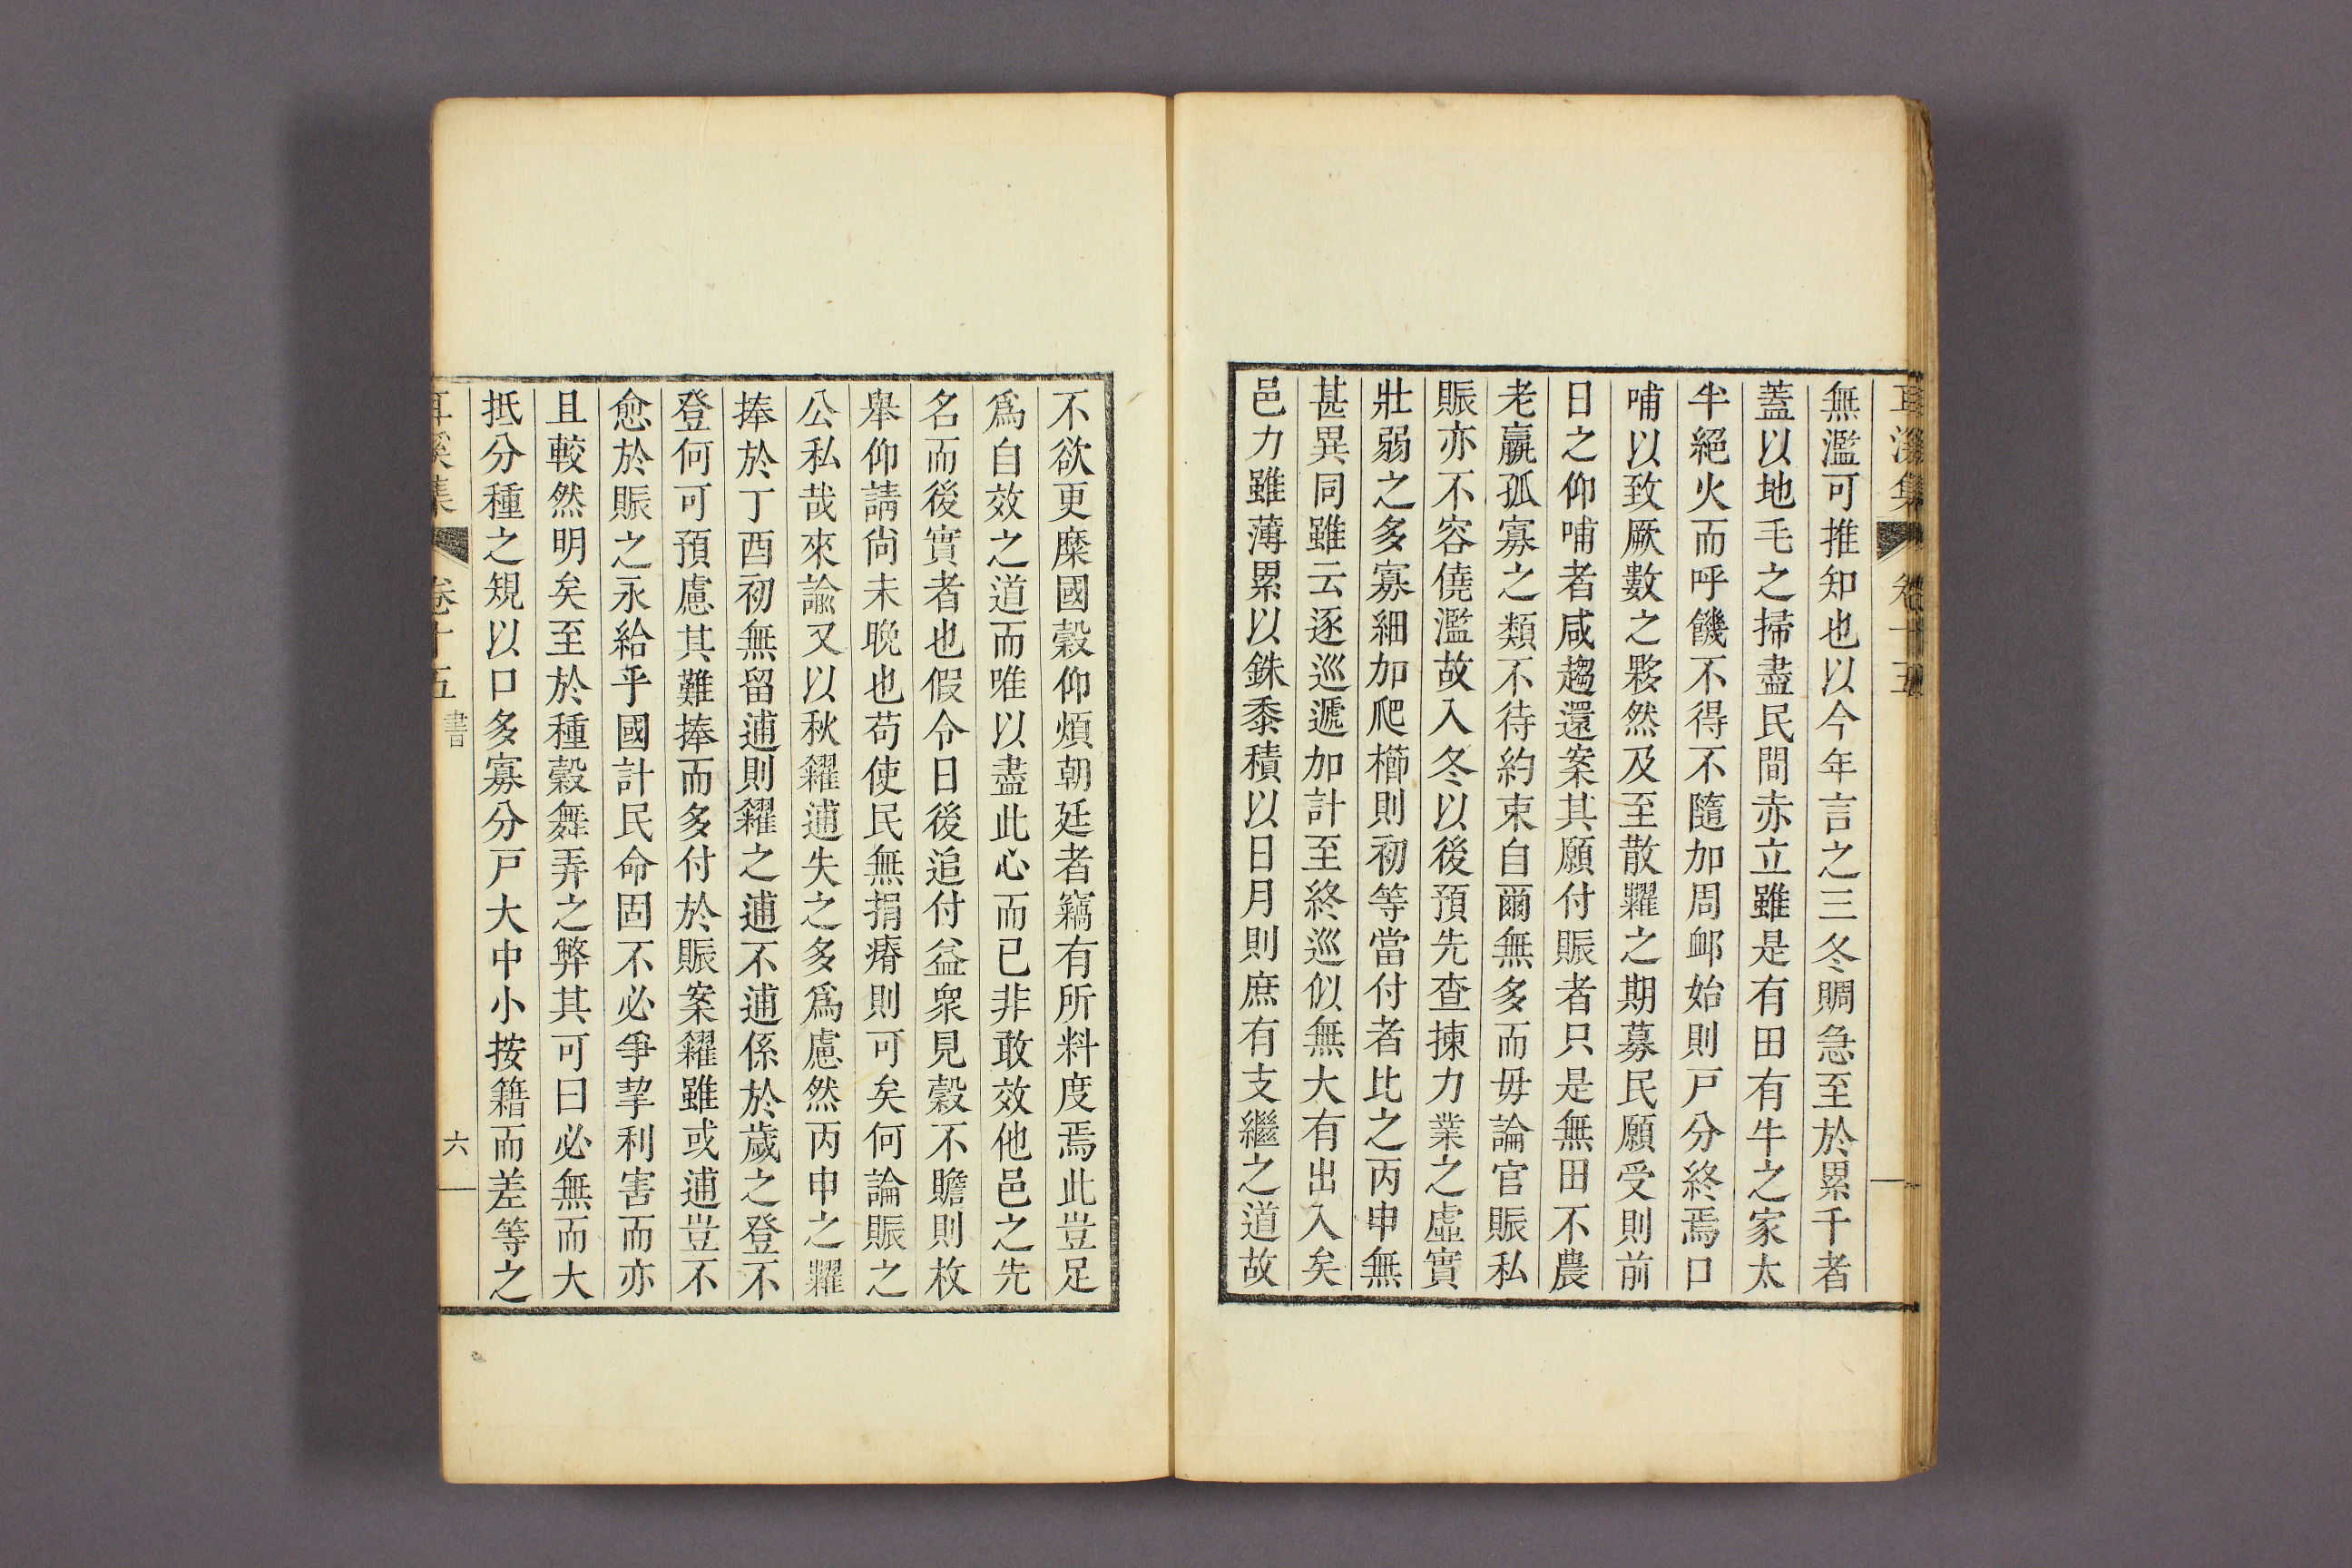 耳溪集 卷十五
無濫可推知也以今年言之三冬賙急至於累千者
蓋以地毛之掃盡民間赤立雖是有田有牛之家太
半絕火而呼饑不得不隨加周卹始則戶分終焉口
哺以致厥數之夥然及至散糶之期募民願受則前
日之仰哺者咸趨還案其願付賑者只是無田不農
老羸孤寡之類不待約束自爾無多而毋論官賑私
賑亦不容僥濫故入冬以後預先查揀力業之虛實
壯弱之多寡細加爬櫛則初等當付者比之丙申無
甚異同雖云逐巡遞加計至終巡似無大有出入矣
邑力雖薄累以銖黍積以日月則庶有支繼之道故
不欲更縻國穀仰煩朝廷者竊有所料度焉此豈足
爲自效之道而唯以盡此心而已非敢效他邑之先
名而後實者也假令日後追付益衆見穀不贍則枚
舉仰請尙未晩也苟使民無捐瘠則可矣何論賑之
公私哉來諭又以秋糴逋失之多爲慮然丙申之糶
捧於丁酉初無留逋則糴之逋不逋係於歲之登不
登何可預慮其難捧而多付於賑案糴雖或逋豈不
愈於賑之永給乎國計民命固不必爭挈利害而亦
且較然明矣至於種穀舞弄之弊其可曰必無而大
抵分種之規以口多寡分戶大中小按籍而差等之
耳溪集 卷十五 書 六